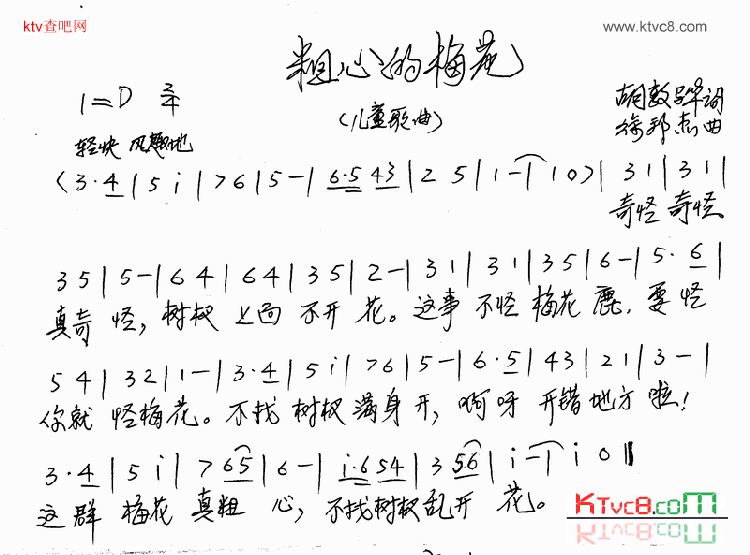 ktv查吧网
www.ktvc8.com
粗心的梅花
(儿童歌曲)
1=D 2/4
胡敦骅词
徐邦杰曲
轻快 风趣地
(3·4|5 i|7 6|5 -|6·5 43|2 5|1 -|1 0)|3 1|3 1|
奇怪 奇怪
3 5|5 -|6 4|6 4|3 5|2 -|3 1|3 1|3 5|6 -|5· 6|
真奇 怪,树杈 上面 不开 花。这事 不怪 梅花 鹿,要怪
5 4|3 2|1 -|3·4|5 i|7 6|5 -|6·5|4 3|2 1|3 -|
你就 怪梅花。不找 树杈 满身 开,啊呀 开错 地方 啦!
3·4|5 i|7 65|6 -|i·6 54|3 56|i -|i 0‖
这群 梅花 真粗 心,不找树杈乱开 花。
KTvc8.com